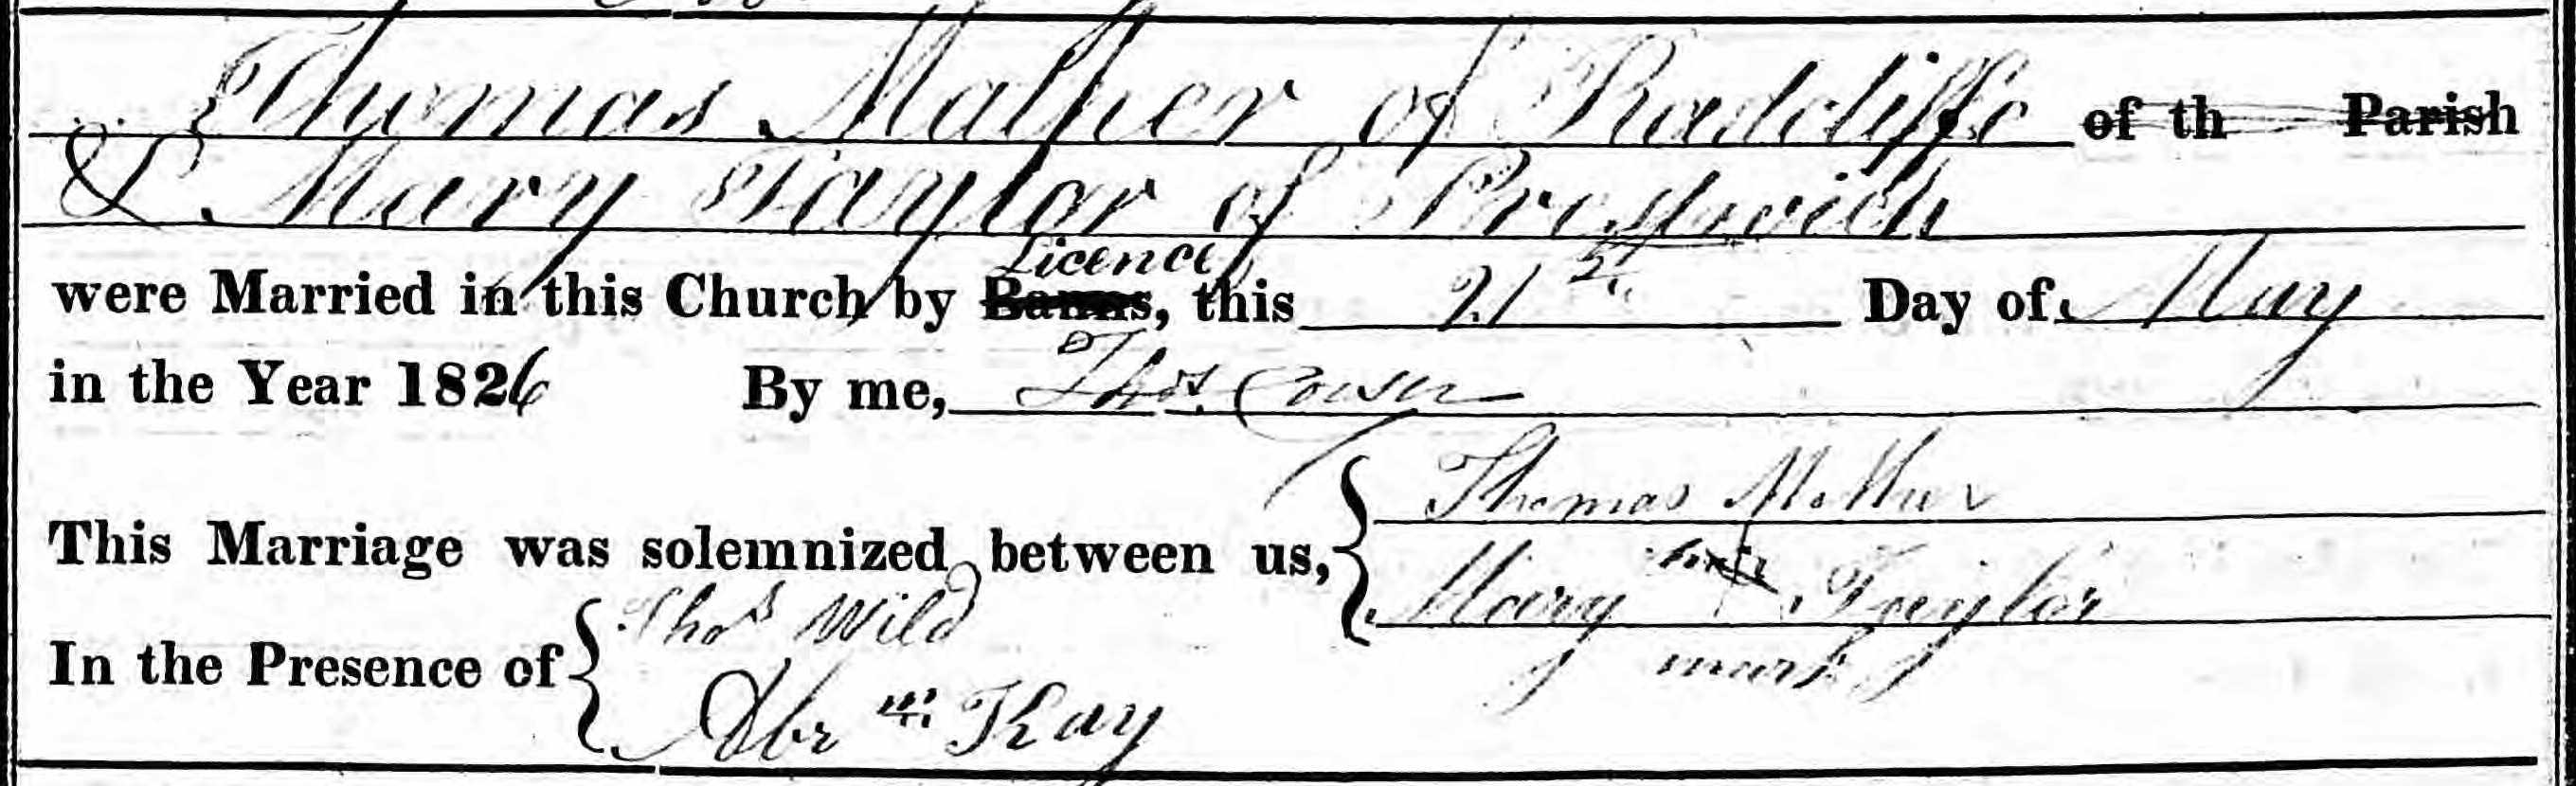 Thomas Mather of Radcliffe of th Parish
& Mary Taylor of Prestwich
Licence
were Married in this Church by Banns, this 21st Day of May
in the Year 1826 By me, Thos. Cowser
Thomas Mather
This Marriage was solemnized between us,
Mary Taylor
mark
In the Presence of
Thos Wild
Abrm Kay